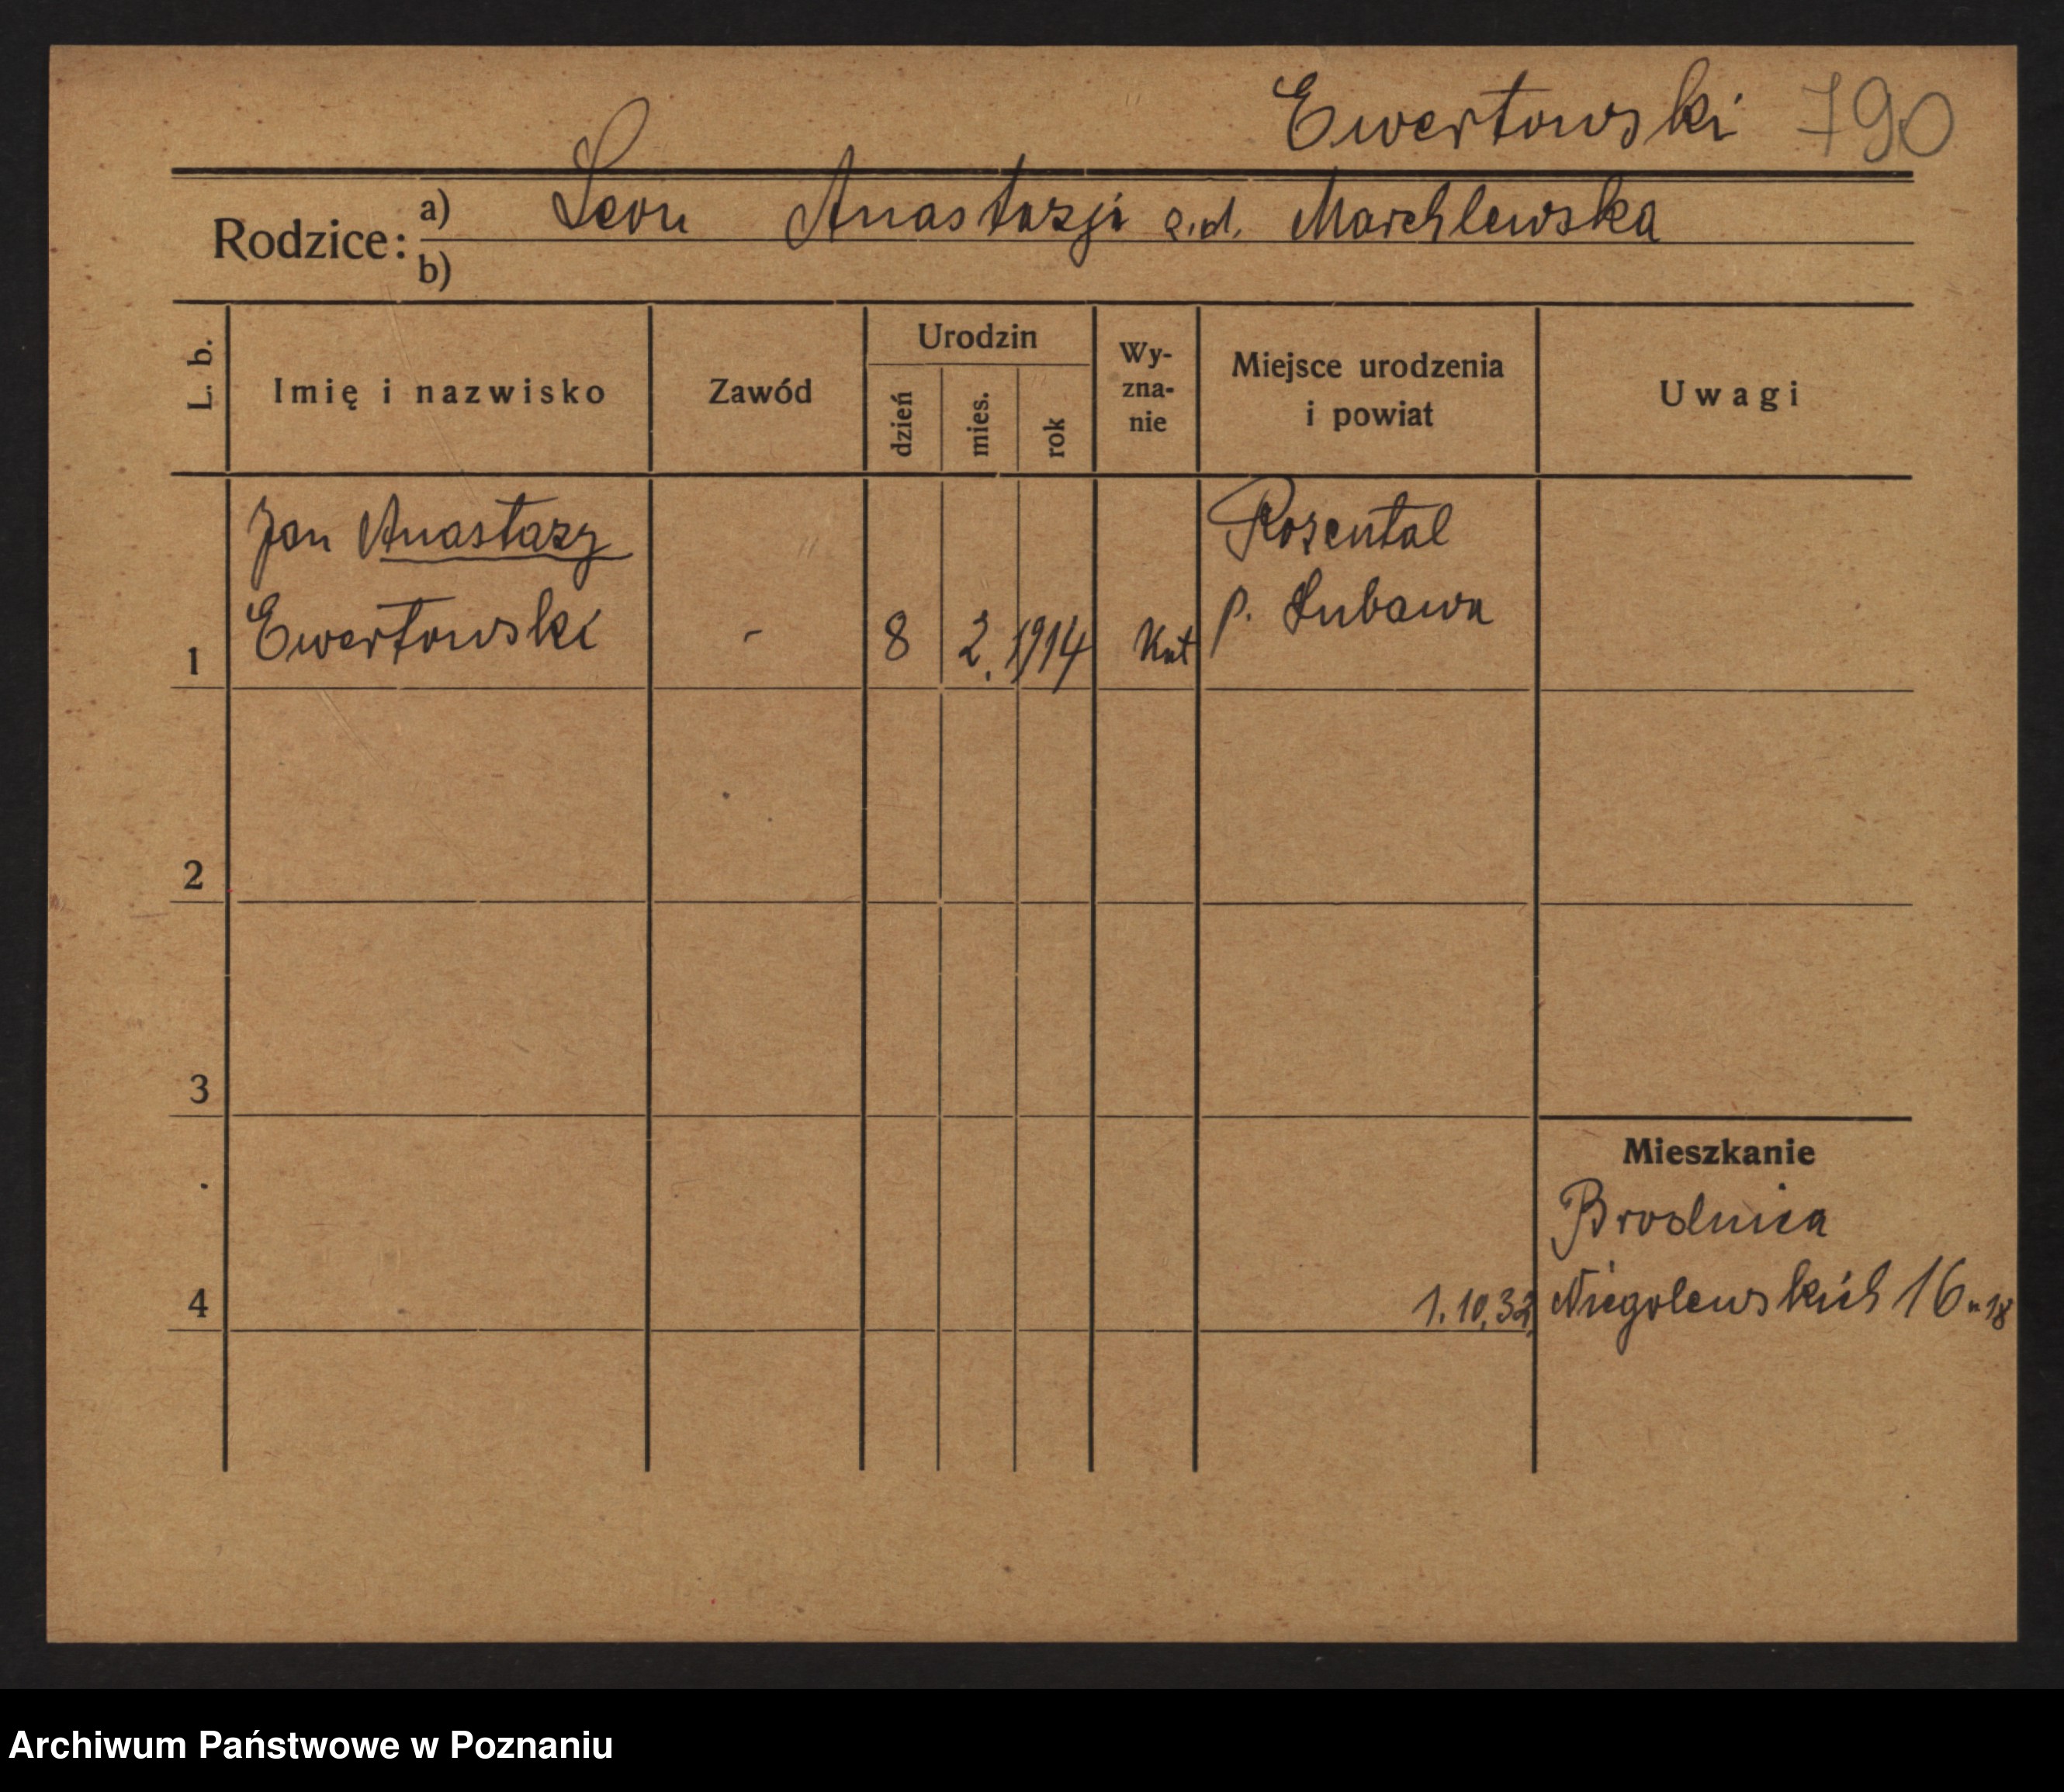 Ewertowski 790
Rodzice: a) Leon Anastazja z.d. Marchlewska
b)
L. b. Imię i nazwisko Zawód Urodzin dzień mies. rok Wy-zna-nie Miejsce urodzenia i powiat Uwagi
Jan Anastazy Rozental
1 Ewertowski - 8 2. 1914 Kat p. Lubawa
2
3
Mieszkanie
Brodnica
4 1.10.32. Niegolewskich 16 n 18
Archiwum Państwowe w Poznaniu